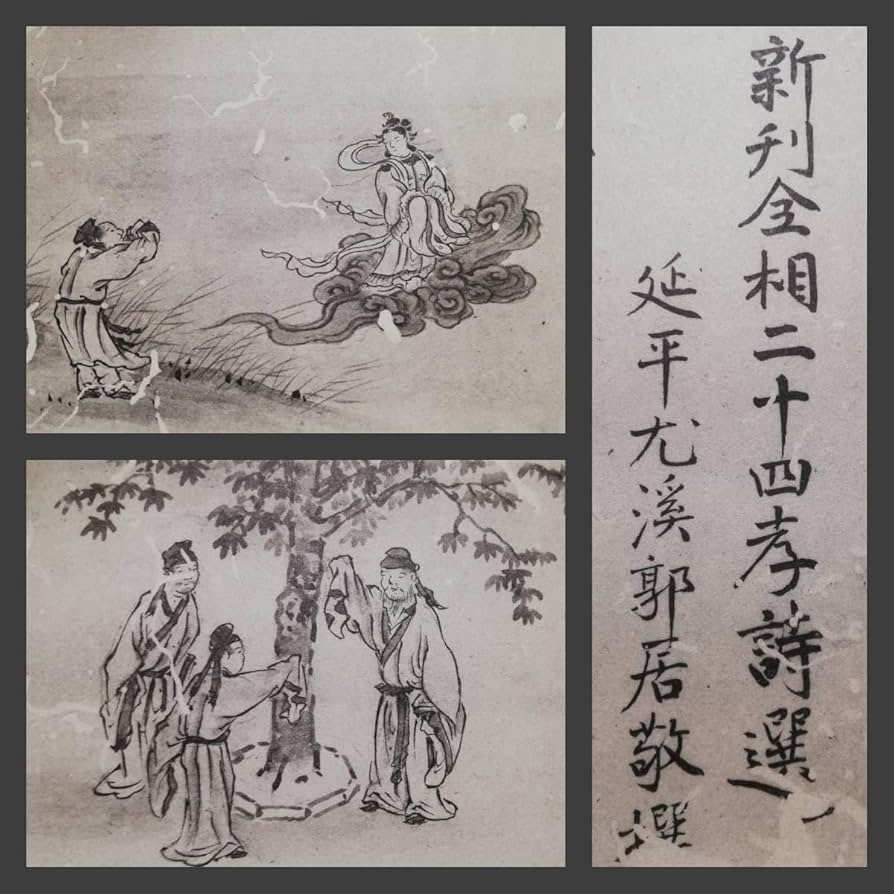 新刊全相二十四孝詩選
延平尤溪郭居敬撰